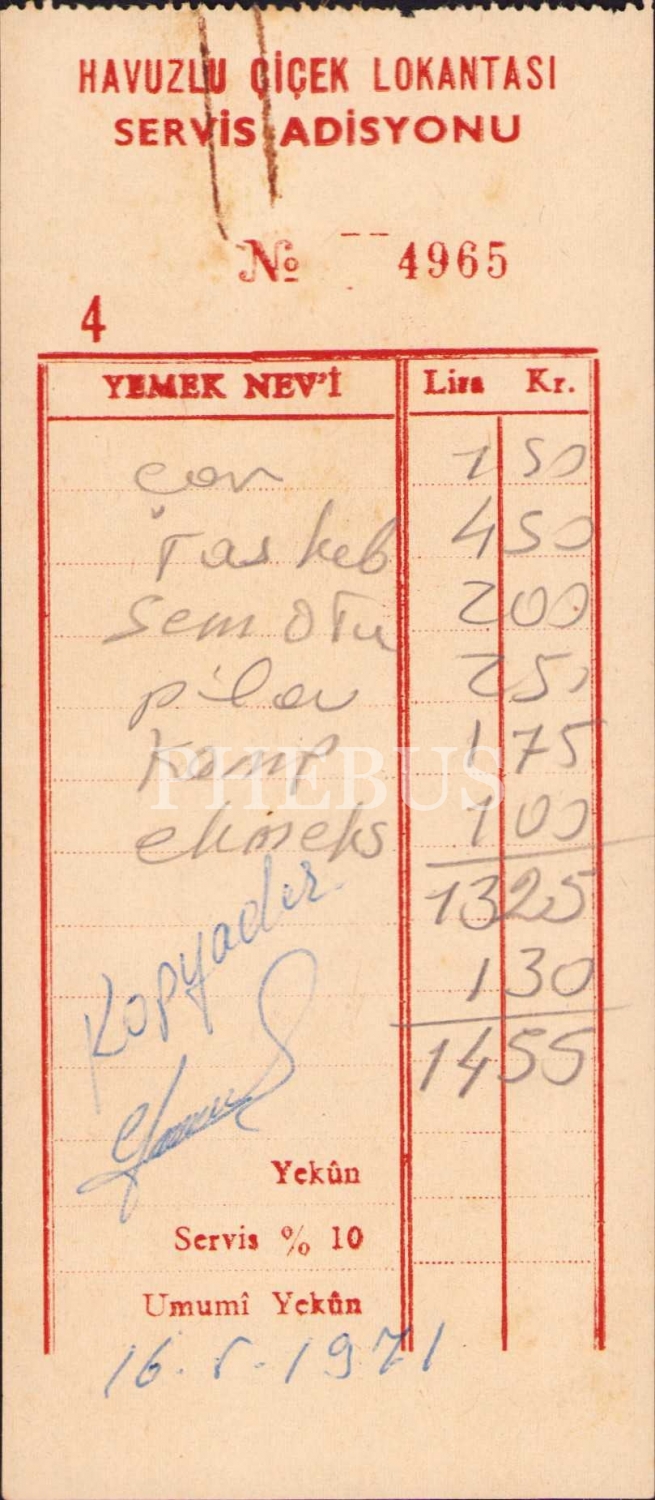 HAVUZLU ÇİÇEK LOKANTASI
SERVİS ADİSYONU
№ -- 4965
4
YEMEK NEV'İ Lira Kr.
çor 1 50
Tas keb 4 50
Sem otu 2 00
pilav 2 50
Komp 1 75
ekmek 1 00
13 25
1 30
14 55
Kopyadır.
Yekûn
Servis % 10
Umumî Yekûn
16.5.1971
PHEBUS